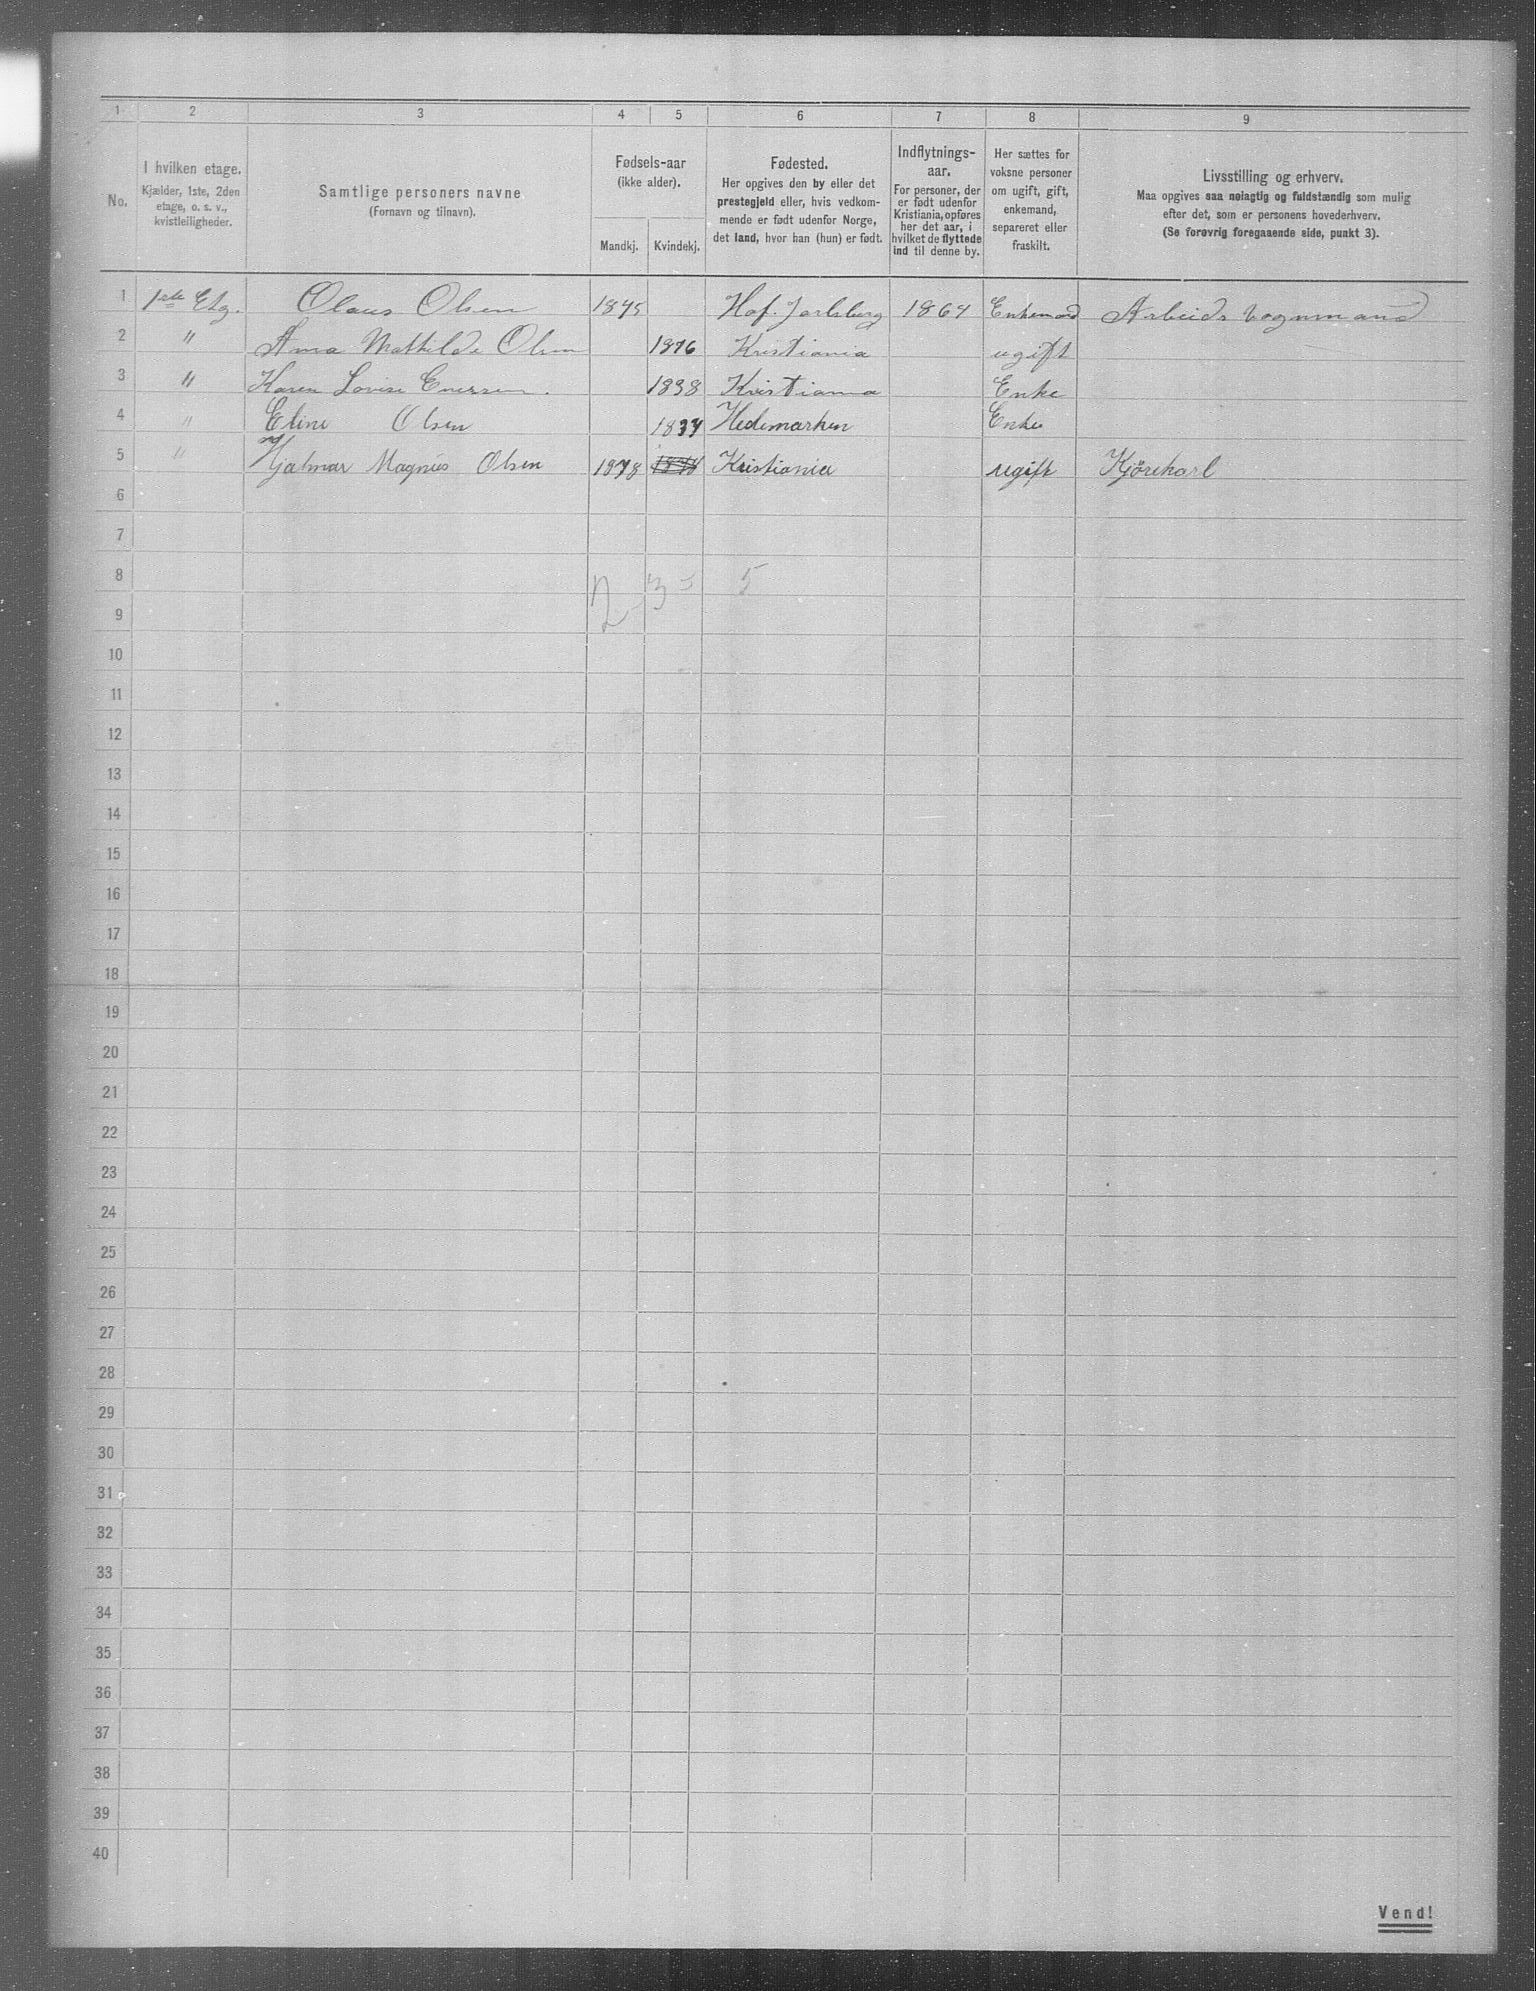 1 2 3 4 5 6 7 8 9
No.
I hvilken etage.
Kjælder, 1ste, 2den
etage, o. s. v.,
kvistleiligheder.
Samtlige personers navne
(Fornavn og tilnavn).
Fødsels-aar
(ikke alder).
Mandkj. Kvindekj.
Fødested.
Her opgives den by eller det
prestegjeld eller, hvis vedkom-
mende er født udenfor Norge,
det land, hvor han (hun) er født.
Indflytnings-
aar.
For personer, der
er født udenfor
Kristiania, opføres
her det aar, i
hvilket de flyttede
ind til denne by.
Her sættes for
voksne personer
om ugift, gift,
enkemand,
separeret eller
fraskilt.
Livsstilling og erhverv.
Maa opgives saa nøiagtig og fuldstændig som mulig
efter det, som er personens hovederhverv.
(Se forøvrig foregaaende side, punkt 3).
1 1ste Etg. Olaus Olsen 1845 Hof. Jarlsberg 1864 Enkemand Arbeids Vognmand
2 " Anna Mathilde Olsen 1876 Kristiania ugift
3 " Karen Lovise 1838 Kristiania Enke
4 " Eline Olsen 1834 Hedemarken Enke
5 " Hjalmar Magnus Olsen 1878 1878 Kristiania ugift Kjørekarl
6
7
8 2 3 5
9
10
11
12
13
14
15
16
17
18
19
20
21
22
23
24
25
26
27
28
29
30
31
32
33
34
35
36
37
38
39
40
Vend!